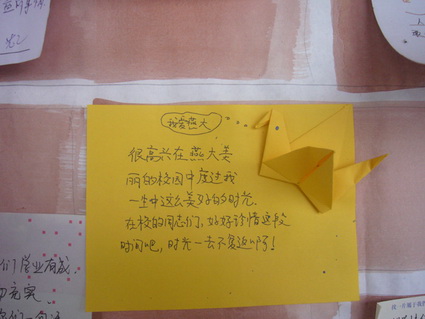 我爱燕大
很高兴在燕大美
丽的校园中度过我
一生中这么美好的时光.
在校的同志们,好好珍惜这段
时间吧,时光一去不复返啊!
们学业有成